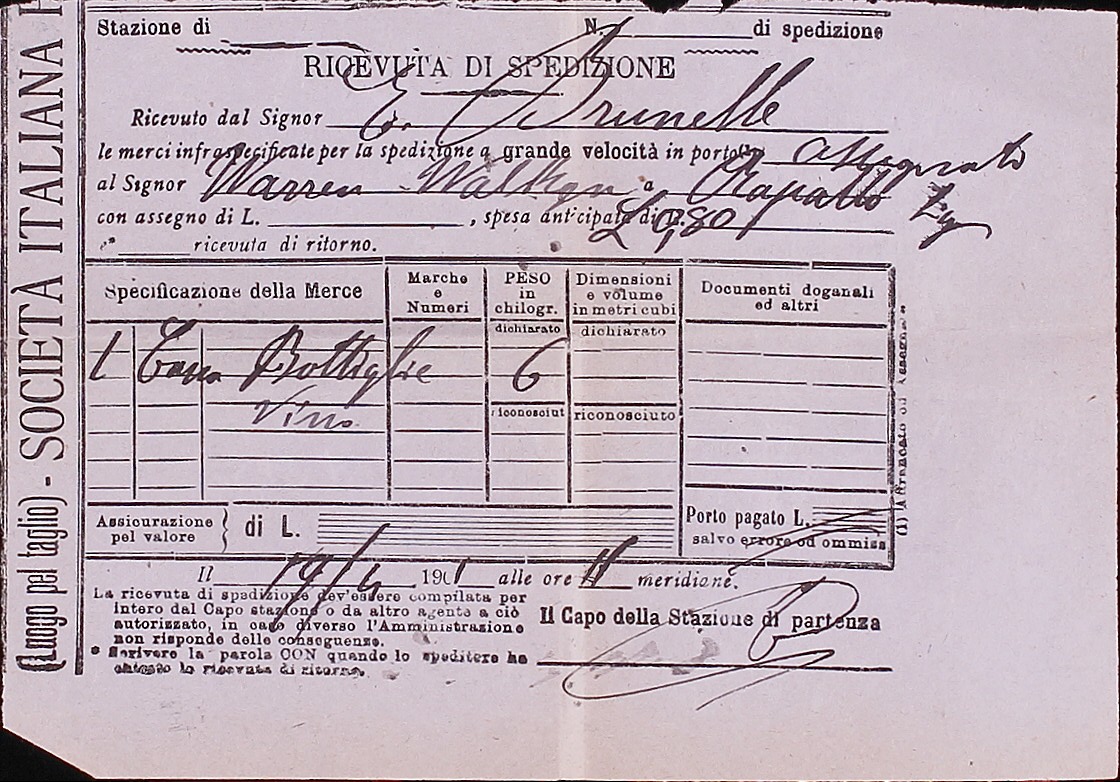 (Luogo pel taglio) - SOCIETÀ ITALIANA
Stazione di N. di spedizione
RICEVUTA DI SPEDIZIONE
Ricevuto dal Signor E. Brunelle
le merci infraspecificate per la spedizione a grande velocità in porto (1) assegnato
al Signor Warren a Rapallo
con assegno di L. , spesa anticipata di L. 0,80
* ricevuta di ritorno.
Specificazione della Merce
Marche e Numeri
PESO in chilogr.
Dimensioni e volume in metri cubi
Documenti doganali ed altri
dichiarato dichiarato
1 Cassa Bottiglie 6
Vino
riconosciut riconosciuto
Assicurazione pel valore } di L.
Porto pagato L.
salvo errore od ommiss
(1) Affrancato od Assegnato
Il 19/4 1901 alle ore 11 meridiane.
La ricevuta di spedizione dev'essere compilata per
intero dal Capo stazione o da altro agente a ciò
autorizzato, in caso diverso l'Amministrazione
non risponde delle conseguenze.
* Scrivere la parola CON quando lo speditore ha
chiesto la ricevuta di ritorno.
Il Capo della Stazione di partenza